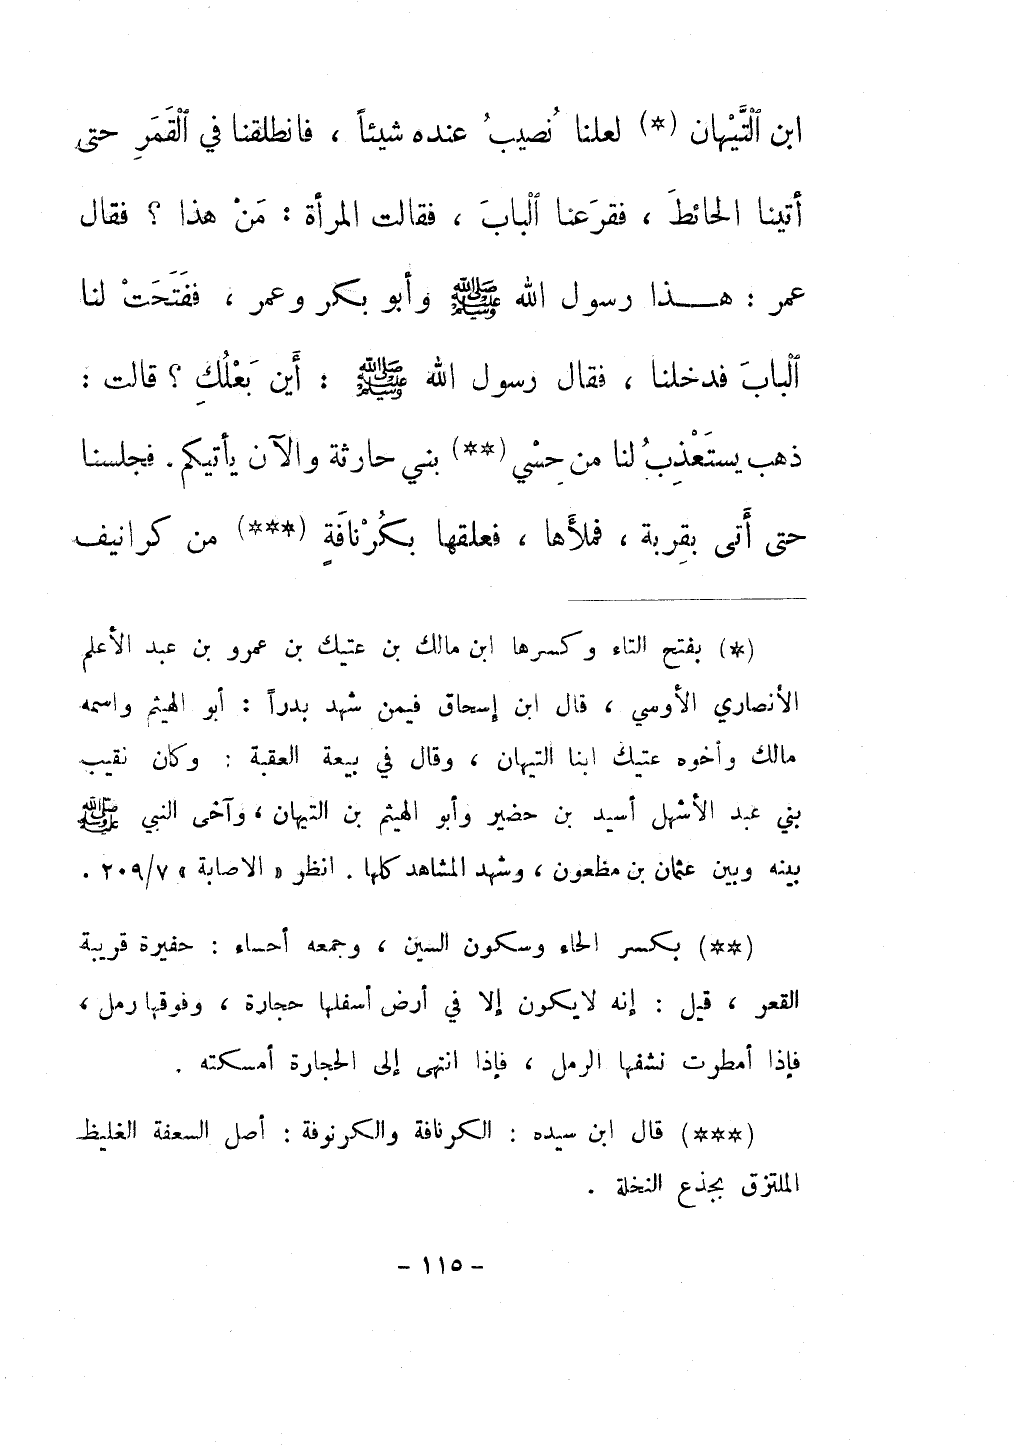 ابن ٱلْتَّيْهان (*) لعلنا نُصيبُ عنده شيئاً ، فانطلقنا في ٱلْقَمَرِ حتى
أتينا الحائطَ ، فقرَعنا ٱلْبابَ ، فقالت المرأة : مَنْ هذا ؟ فقال
عمر : هــذا رسول الله ﷺ وأبو بكر وعمر ، ففَتَحَتْ لنا
ٱلْبابَ فدخلنا ، فقال رسول الله ﷺ : أَين بَعْلُكِ ؟ قالت :
ذهب يستَعْذِبُ لنا من حِسْي (**) بني حارثة والآن يأتيكم . فجلسنا
حتى أَتى بقِربة ، فملأَها ، فعلقها بكُرْنافَةٍ (***) من كرانيف
(*) بفتح التاء وكسرها ابن مالك بن عتيك بن عمرو بن عبد الأعلم
الأنصاري الأوسي ، قال ابن إسحاق فيمن شهد بدراً : أبو الهيثم واسمه
مالك وأخوه عتيك ابنا التيهان ، وقال في بيعة العقبة : وكان نقيب
بني عبد الأشهل أسيد بن حضير وأبو الهيثم بن التيهان ، وآخى النبي ﷺ
بينه وبين عثمان بن مظعون ، وشهد المشاهد كلها . انظر « الاصابة » ٢٠٩/٧ .
(**) بكسر الحاء وسكون السين ، وجمعه أحساء : حفيرة قريبة
القعر ، قيل : إنه لايكون إلا في أرض أسفلها حجارة ، وفوقها رمل ،
فإذا أمطرت نشفها الرمل ، فإذا انتهى إلى الحجارة أمسكته .
(***) قال ابن سيده : الكرنافة والكرنوفة : أصل السعفة الغليظ
الملتزق بجذع النخلة .
- ١١٥ -